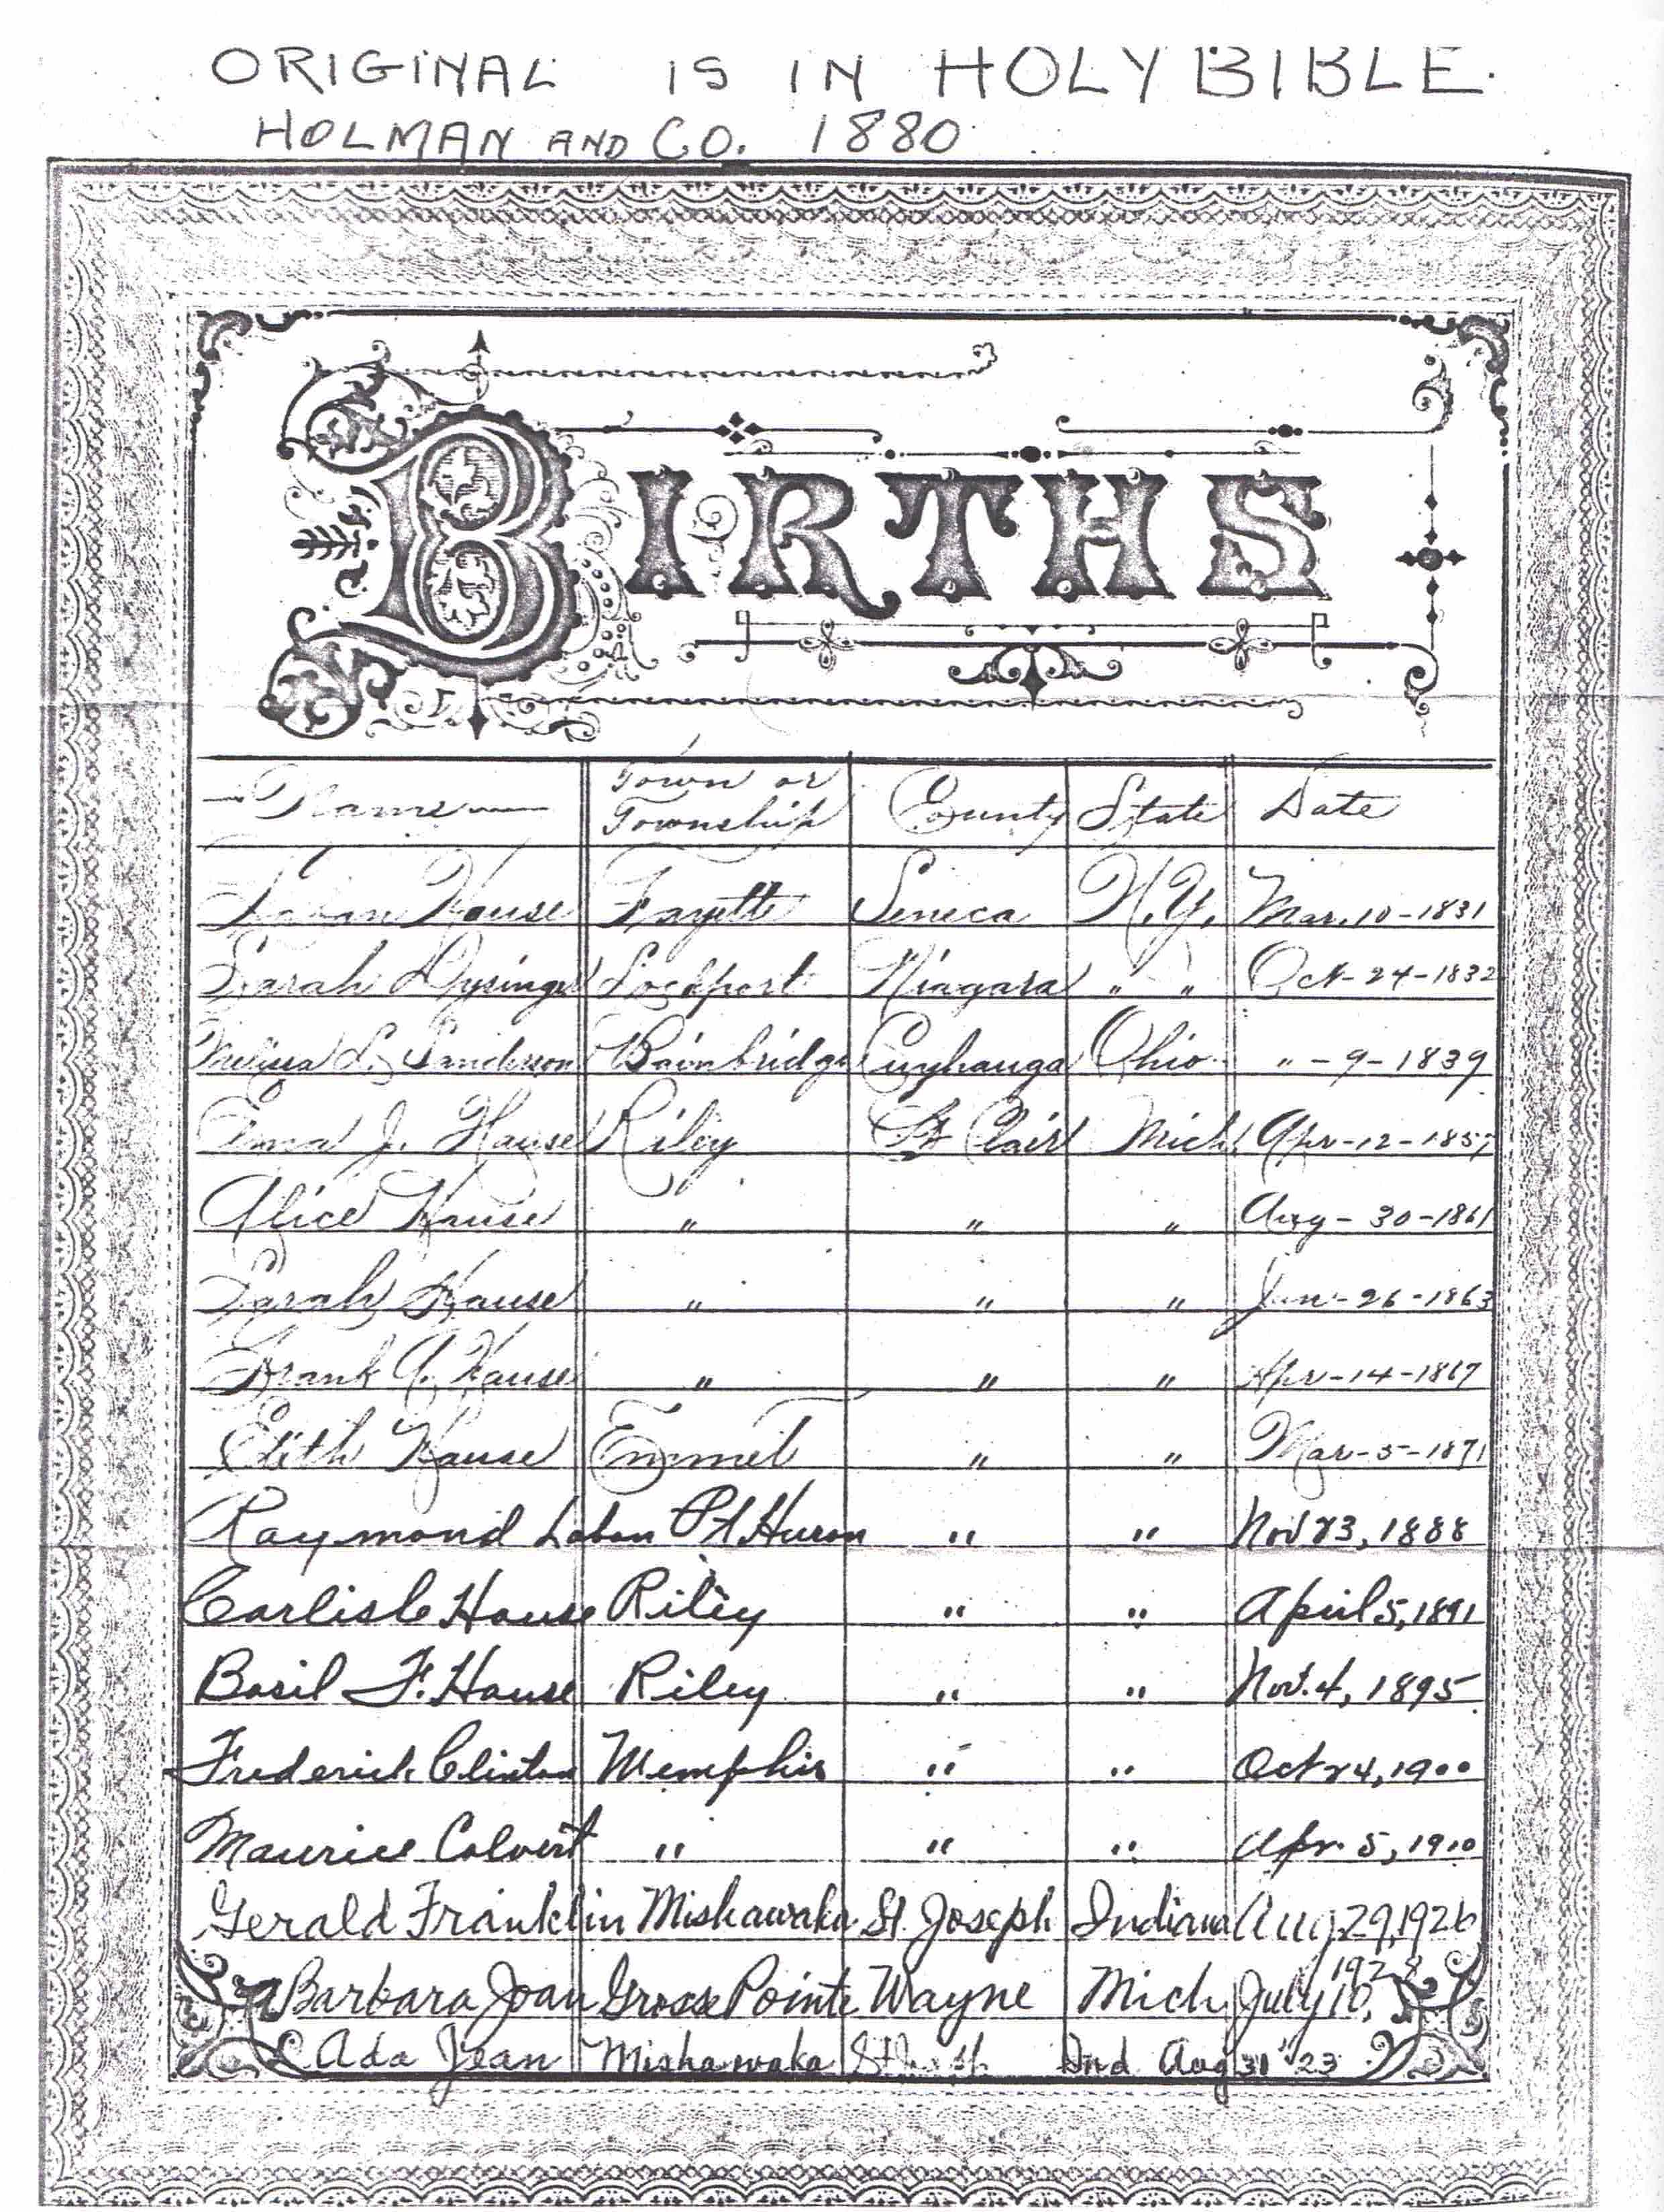 ORIGINAL IS IN HOLY BIBLE.
HOLMAN AND CO. 1880
BIRTHS
Name Town or Township County State Date
Laban Hause Fayette Seneca N.Y. Mar. 10-1831
Sarah Dysinger Lockport Niagara " " Oct-24-1832
Melissa L. Sanderson Bainbridge Cuyhauga Ohio " -9-1839
Emma J. Hause Riley St Clair Mich. Apr-12-1857
Alice Hause " " " Aug-30-1861
Sarah Hause " " " Jun-26-1863
Frank A. Hause " " " Apr-14-1867
Edith Hause Emmet " " Mar-5-1871
Raymond Laban Pt Huron " " Nov 23, 1888
Carlisle Hause Riley " " April 5, 1891
Basil F. Hause Riley " " Nov. 4, 1895
Frederick Clinton Memphis " " Oct 24, 1900
Maurice Calvert " " " Apr. 5, 1910
Gerald Franklin Mishawaka St. Joseph Indiana Aug 29, 1926
Barbara Joan Grosse Pointe Wayne Mich July 10, 1928
Ada Jean Mishawaka St Joseph Ind Aug 31 '23